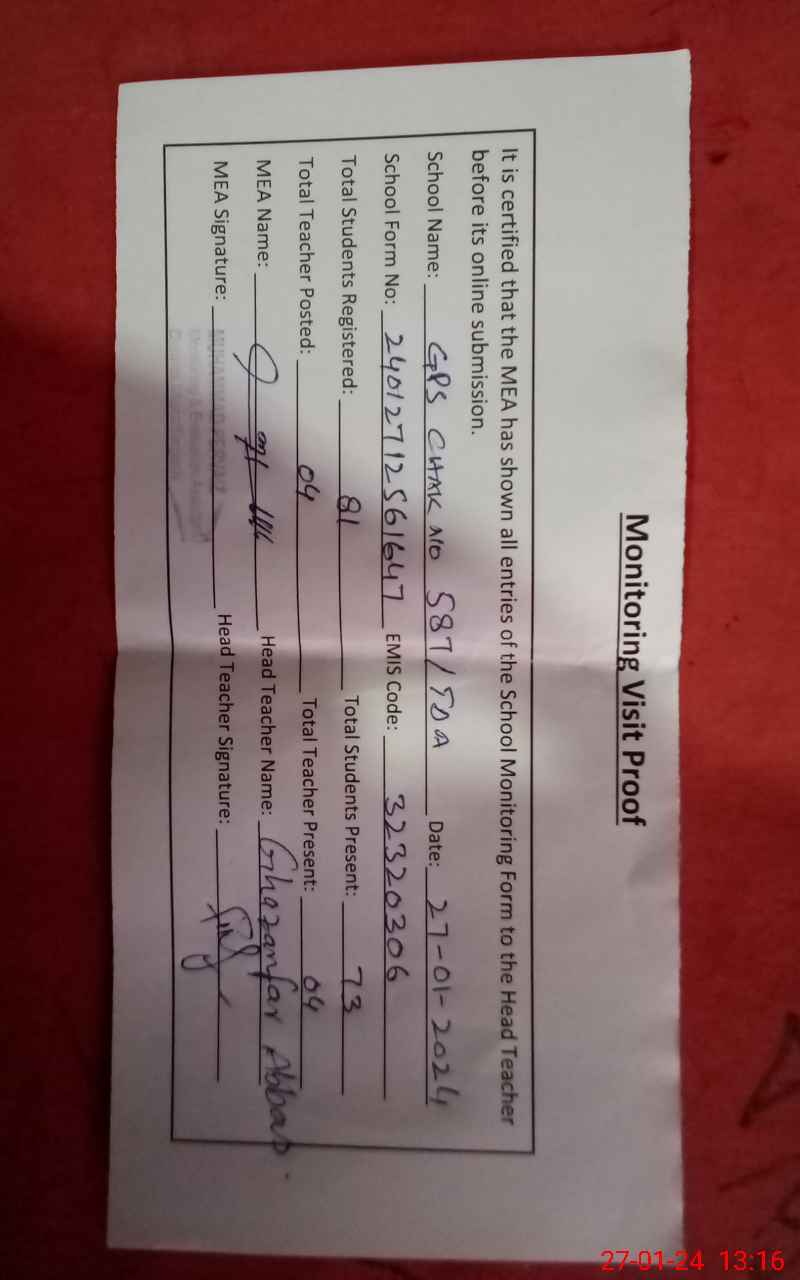 Monitoring Visit Proof
It is certified that the MEA has shown all entries of the School Monitoring Form to the Head Teacher
before its online submission.
School Name: GPS CHAK NO 587/TDA Date: 27-01-2024
School Form No: 24012712561647 EMIS Code: 32320306
Total Students Registered: 81 Total Students Present: 73
Total Teacher Posted: 04 Total Teacher Present: 04
MEA Name: Head Teacher Name: Ghazanfar Abbas
MEA Signature: Head Teacher Signature:
27-01-24 13:16